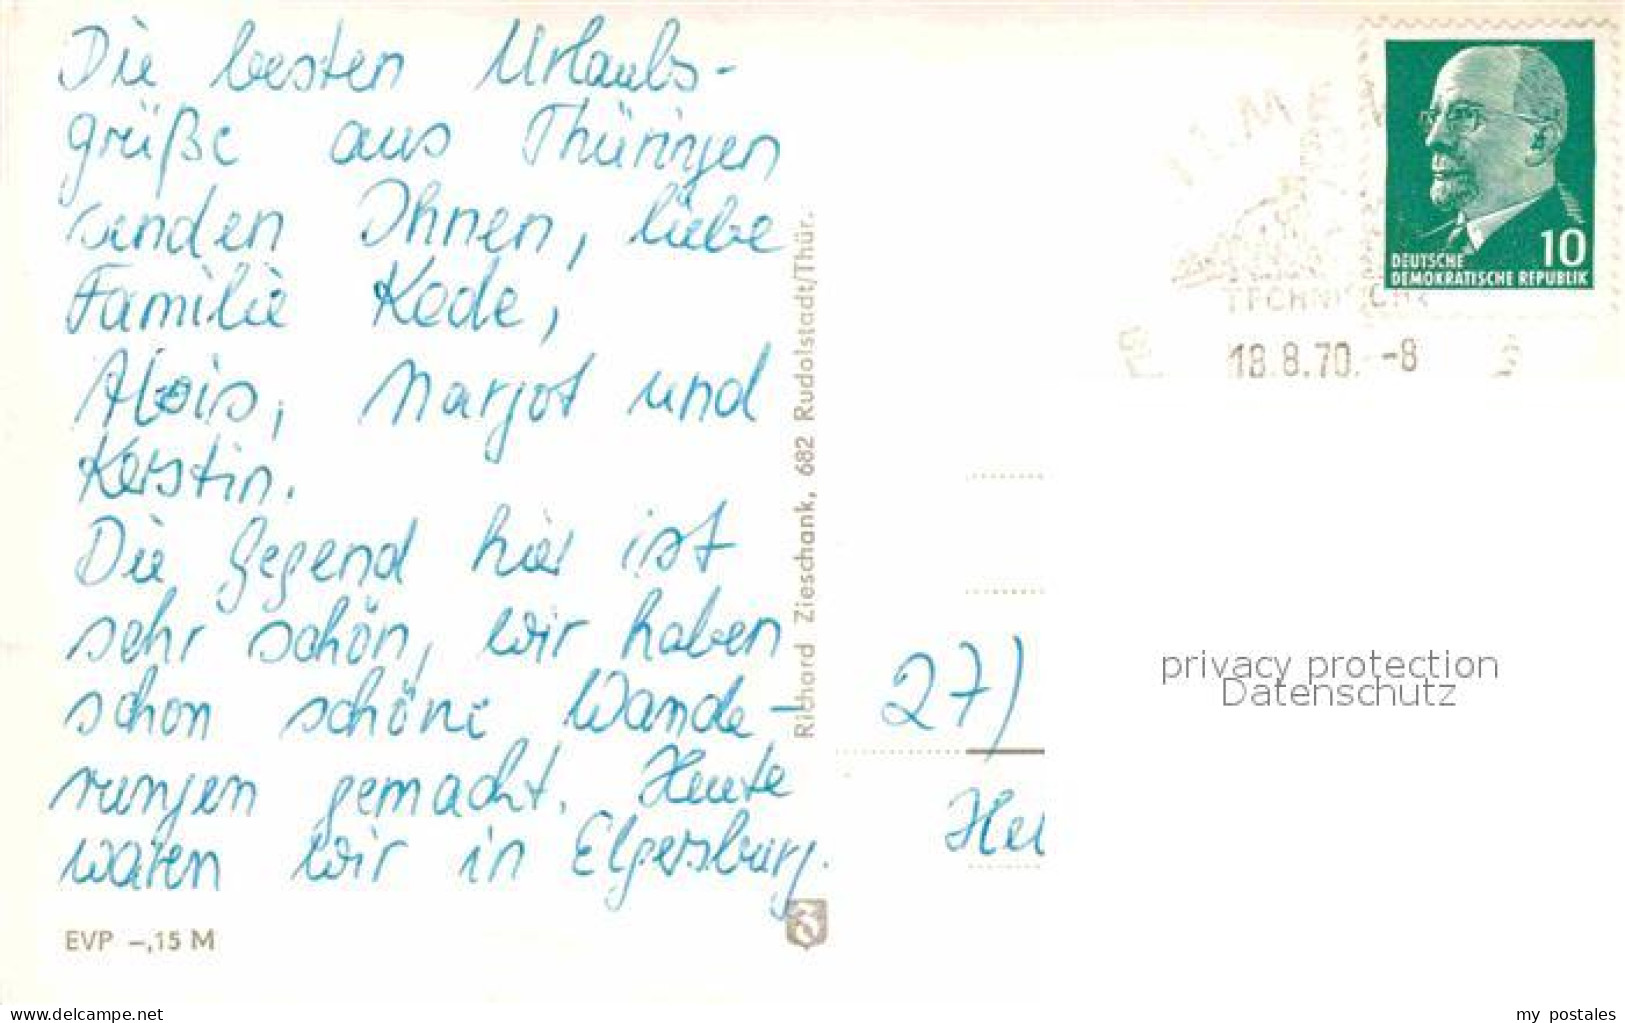 Die besten Urlaubs-
grüße aus Thüringen
senden Ihnen, liebe
Familie Kede,
Alois, Margot und
Kerstin.
Die Gegend hier ist
sehr schön, wir haben
schon schöne Wande-
rungen gemacht. Heute
waren wir in Elgersburg.
EVP –,15 M
Richard Zieschank, 682 Rudolstadt/Thür.
10
DEUTSCHE
DEMOKRATISCHE REPUBLIK
TECHNISCHE
18.8.70.-8
27)
privacy protection
Datenschutz
www.delcampe.net
my_postales